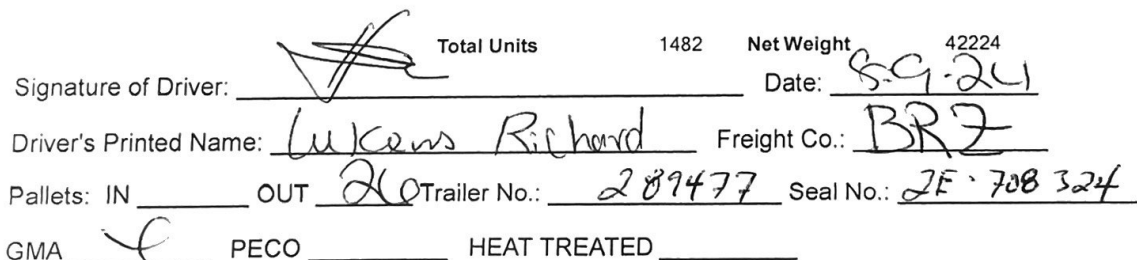 Total Units 1482 Net Weight 42224
Signature of Driver: Date: 8-9-24
Driver's Printed Name: Lukens Richard Freight Co.: BRZ
Pallets: IN OUT 26 Trailer No.: 289477 Seal No.: 2E-708324
GMA PECO HEAT TREATED